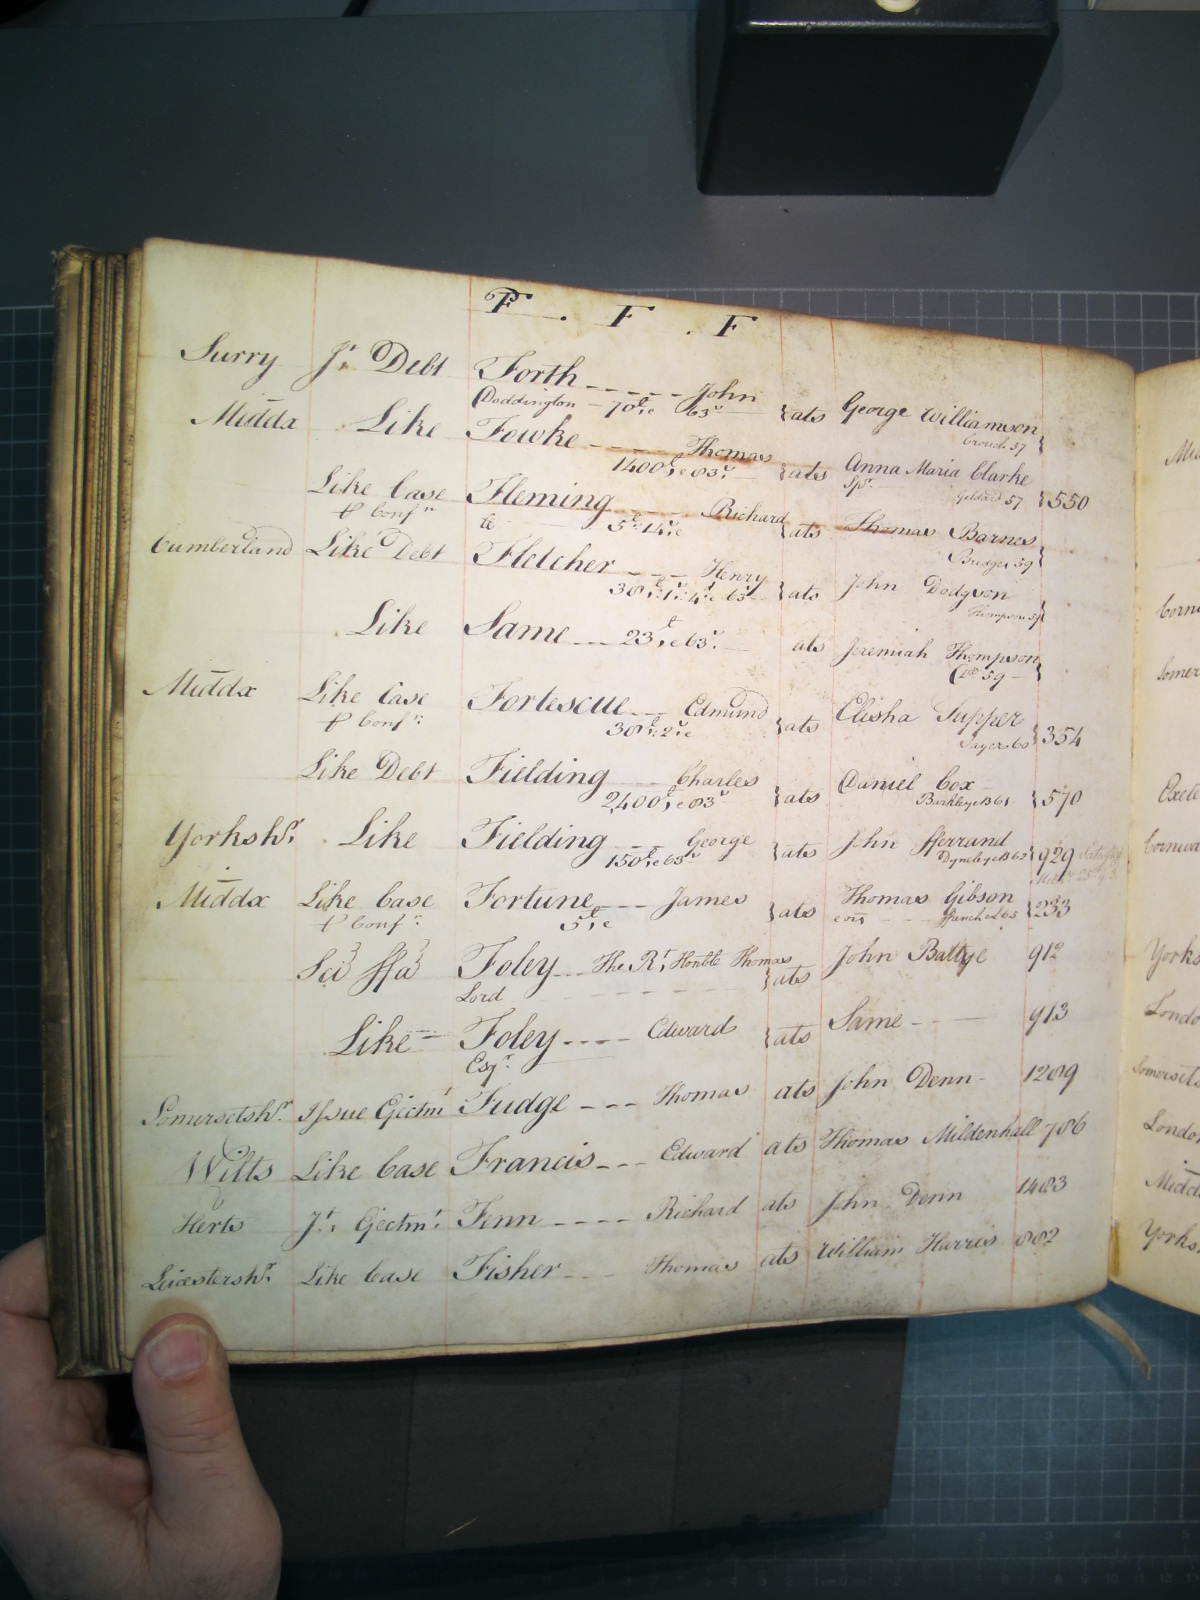 F . F . F
Surry Jt. Debt Forth John
Doddington 70£, & 63s } ats George Williamson
Crouch 57
Middx Like Fewke Thomas
1400£, & 83s. } ats Anna Maria Clarke
Spr. 57 } 550
Like Case Fleming Richard
p Confn 5£: 14s, & } ats Thomas Barnes
Bridges 59
Cumberland Like Debt Fletcher Henry
38£: 1s: 4d, & 63s } ats John Dodgson
Thompson 59
Like Same 23£, & 63s. ats Jeremiah Thompson
Do 59
Middx Like Case Fortescue Edmund
p Confn 38£: 2s, & } ats Elisha Tupper
Sayer 60 } 354
Like Debt Fielding Charles
2400£, & 83s } ats Daniel Cox
Barkley & B 61 } 570
Yorkshr. Like Fielding George
150£, & 63s } ats John Fferrand
Dyneley & B 62 } 929
Middx Like Case Fortune James
p Confn 5£, & } ats Thomas Gibson
65 } 233
Sci ffa Foley The Rt. Honble Thomas
Lord } ats John Battye 912
Like Foley Edward
Esqr. } ats Same 913
Somersetshr. Issue Ejectmt Fudge Thomas ats John Denn 1289
Wilts Like Case Francis Edward ats Thomas Mildenhall 786
Herts Jt. Ejectmt. Fenn Richard ats John Denn 1483
Leicestershr. Like Case Fisher Thomas ats William Harris 882